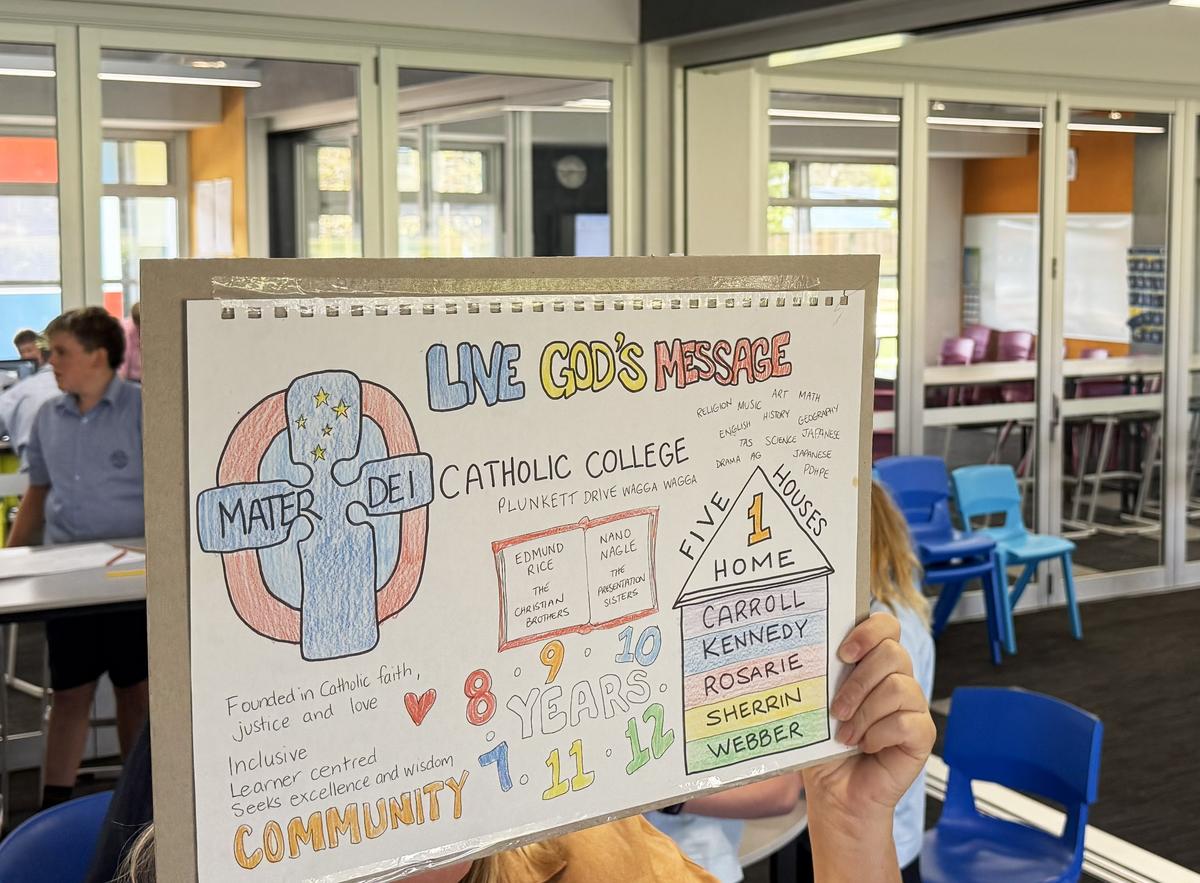 LIVE GOD'S MESSAGE
RELIGION MUSIC ART MATH
ENGLISH HISTORY GEOGRAPHY
TAS SCIENCE JAPANESE
DRAMA AG JAPANESE
PDHPE
MATER DEI CATHOLIC COLLEGE
PLUNKETT DRIVE WAGGA WAGGA
EDMUND
RICE
THE
CHRISTIAN
BROTHERS
NANO
NAGLE
THE
PRESENTATION
SISTERS
FIVE HOUSES
1
HOME
CARROLL
KENNEDY
ROSARIE
SHERRIN
WEBBER
8 · 9 · 10
YEARS
7 · 11 · 12
Founded in Catholic faith,
justice and love
Inclusive
Learner centred
Seeks excellence and wisdom
COMMUNITY